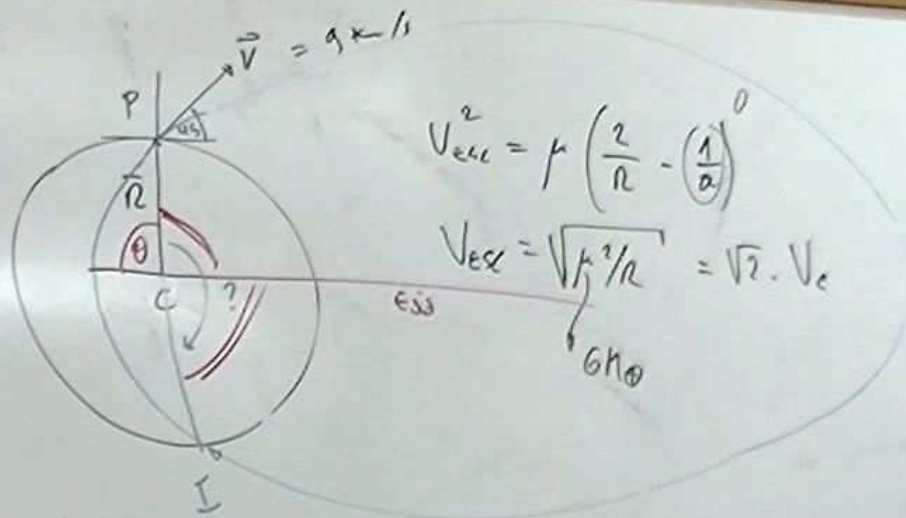 V⃗ = 9 km/s
P
45
R̅
θ
C
?
I
V²esc = μ (2/R - (1/a)) 0
Vesc = √(μ2/R) = √2 · Vc
GM⊕